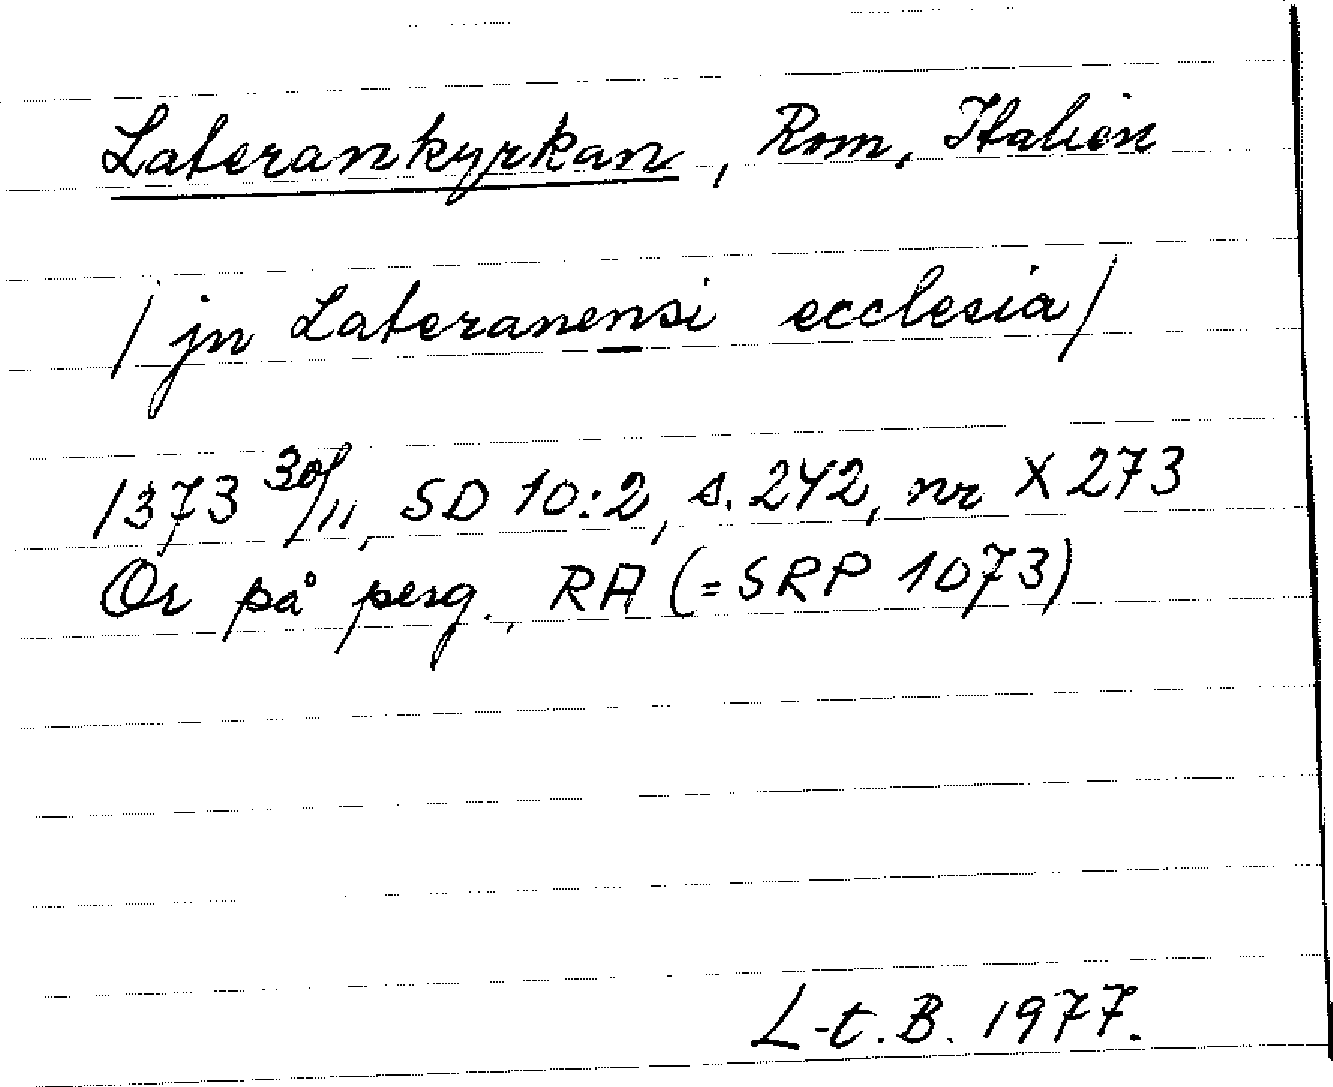 Laterankyrkan, Rom, Italien
/ jn Lateranensi ecclesia /
1373 30/11, SD 10:2, s. 242, nr X 273
Or på perg., RA (= SRP 1073)
L-t. B. 1977.